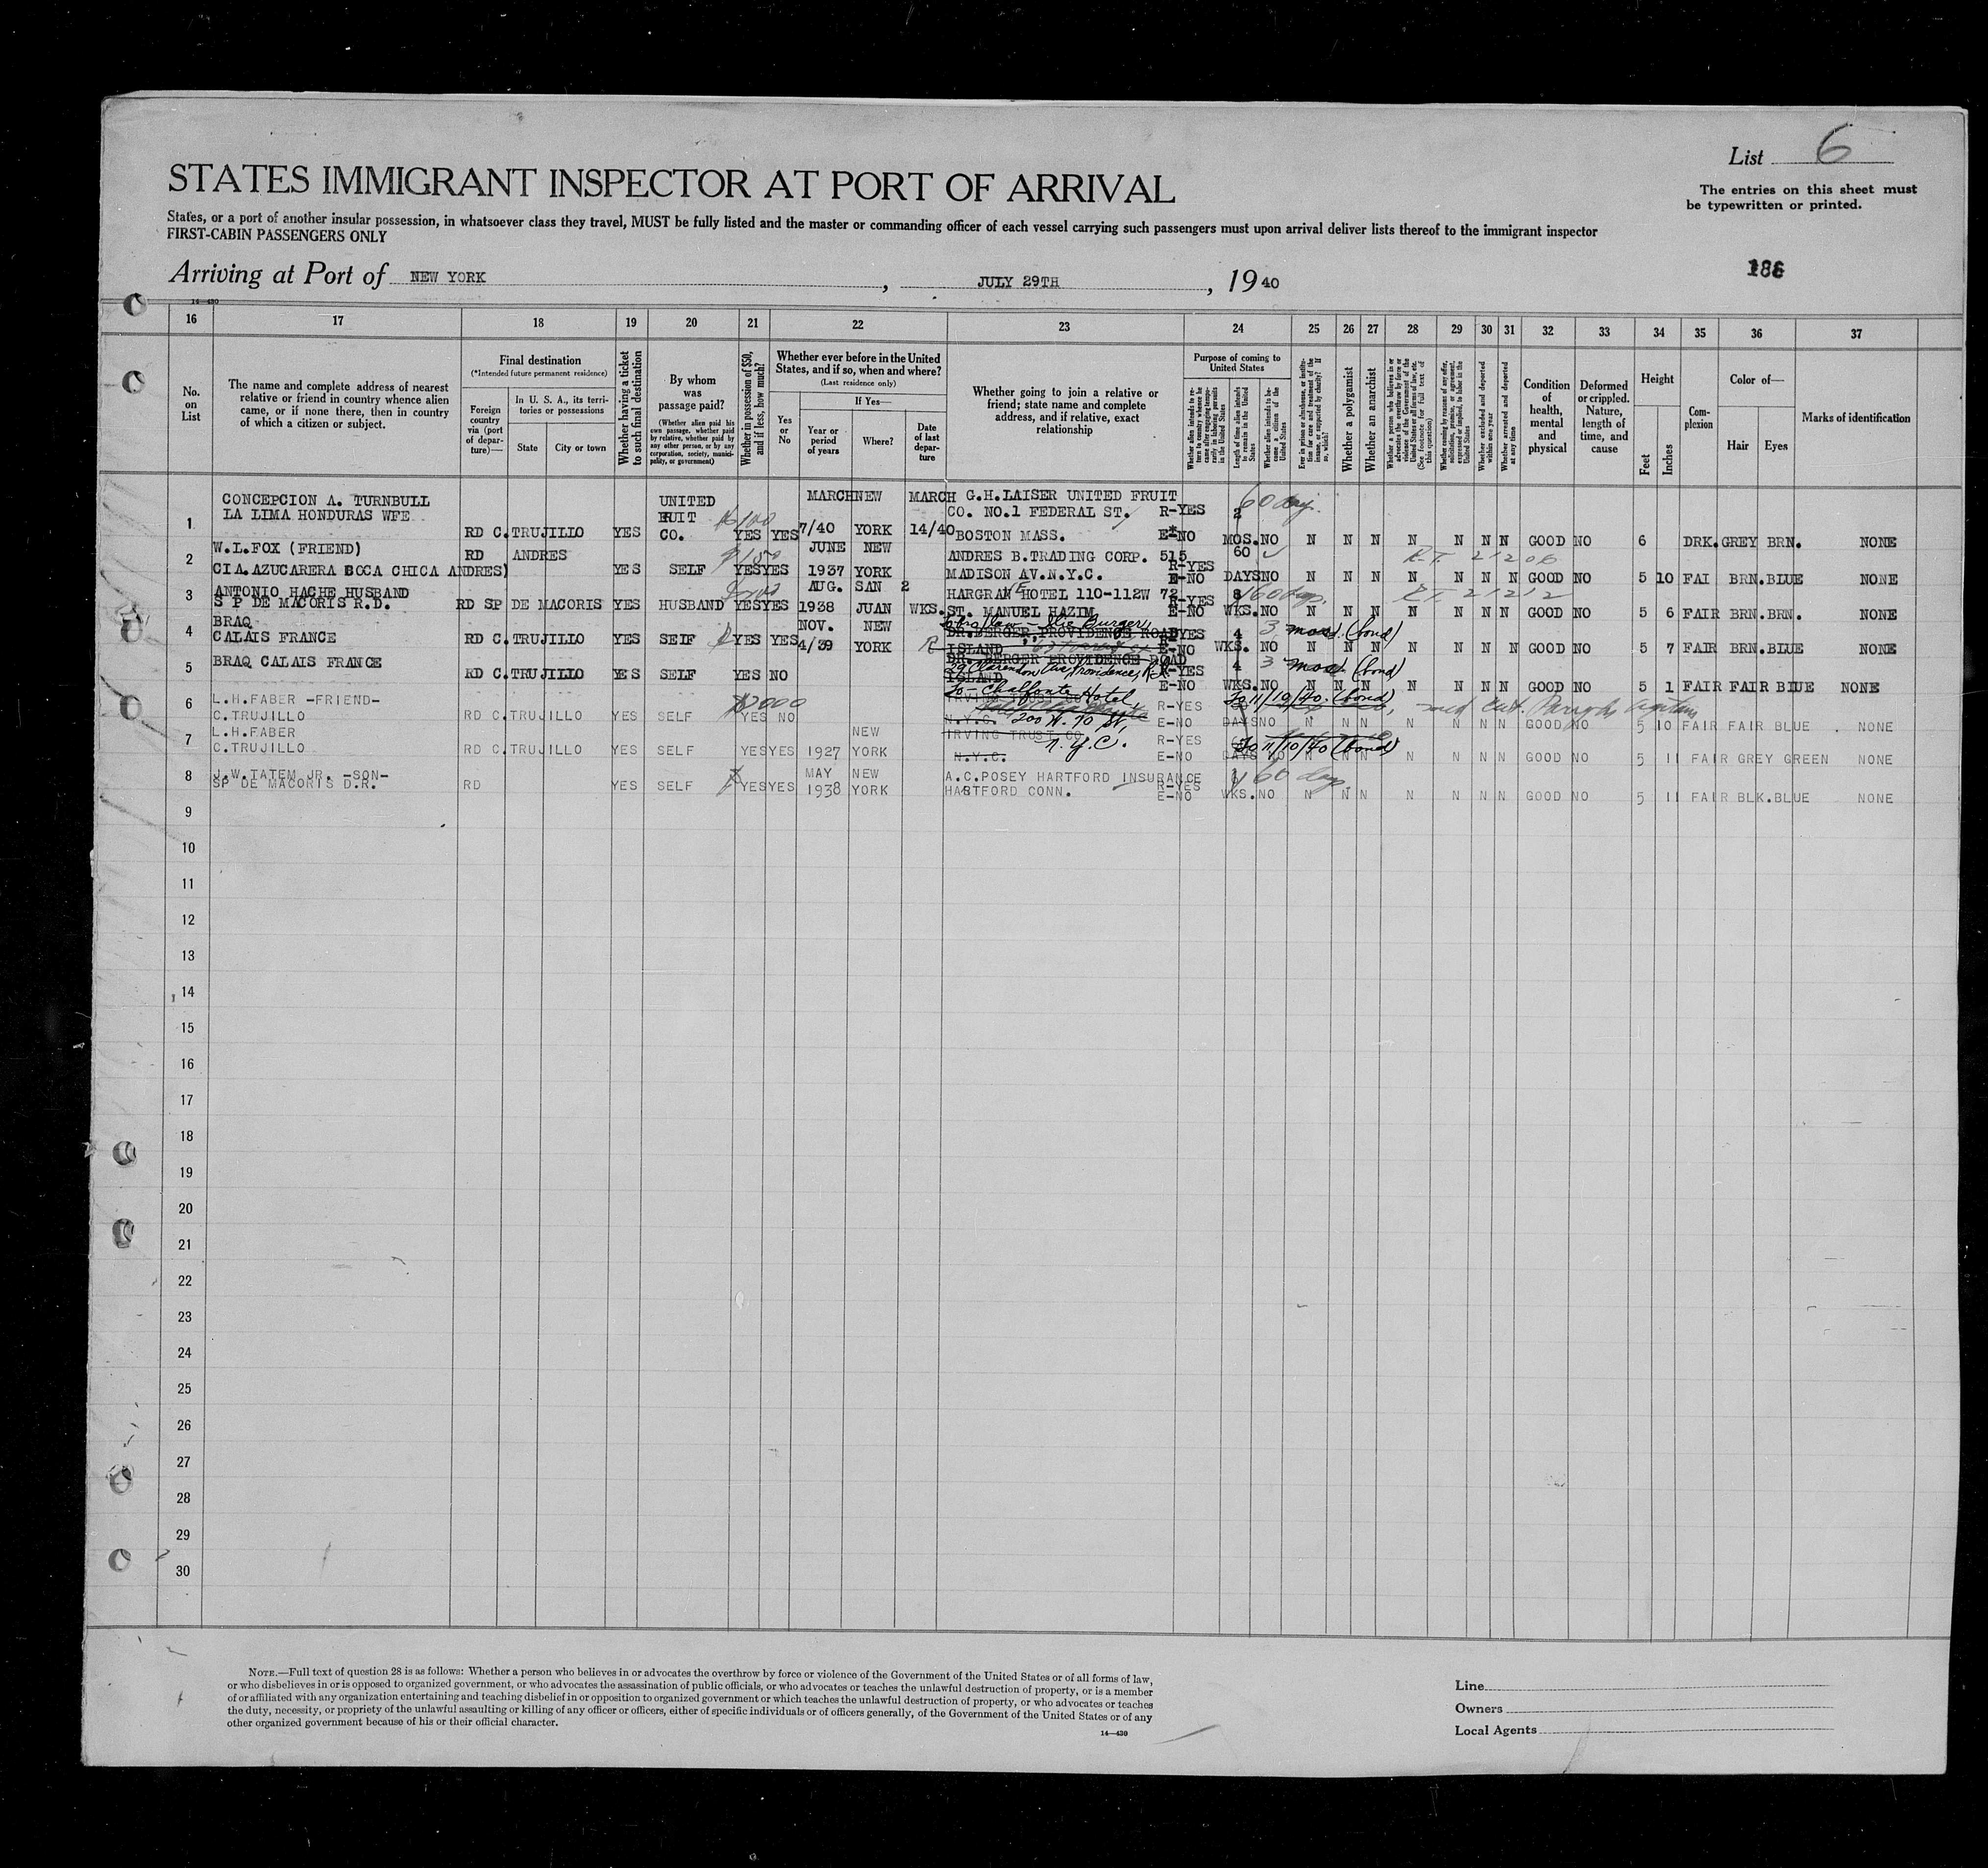 List 6
STATES IMMIGRANT INSPECTOR AT PORT OF ARRIVAL
The entries on this sheet must
be typewritten or printed.
States, or a port of another insular possession, in whatsoever class they travel, MUST be fully listed and the master or commanding officer of each vessel carrying such passengers must upon arrival deliver lists thereof to the immigrant inspector
FIRST-CABIN PASSENGERS ONLY
186
Arriving at Port of NEW YORK, JULY 29TH, 1940
14—430
16 17 18 19 20 21 22 23 24 25 26 27 28 29 30 31 32 33 34 35 36 37
No. on List
The name and complete address of nearest relative or friend in country whence alien came, or if none there, then in country of which a citizen or subject.
Final destination
(*Intended future permanent residence)
Foreign country via (port of departure)—
In U. S. A., its territories or possessions
State
City or town
Whether having a ticket to such final destination
By whom was passage paid?
(Whether alien paid his own passage, whether paid by relative, whether paid by any other person, or by any corporation, society, municipality, or government)
Whether in possession of $50, and if less, how much?
Whether ever before in the United States, and if so, when and where?
(Last residence only)
Yes or No
If Yes—
Year or period of years
Where?
Date of last departure
Whether going to join a relative or friend; state name and complete address, and if relative, exact relationship
Purpose of coming to United States
Whether alien intends to return to country whence he came after engaging temporarily in laboring pursuits in the United States
Length of time alien intends to remain in the United States
Whether alien intends to become a citizen of the United States
Ever in prison or almshouse, or institution for care and treatment of the insane, or supported by charity? If so, which?
Whether a polygamist
Whether an anarchist
Whether a person who believes in or advocates the overthrow by force or violence of the Government of the United States or all forms of law, etc. (See footnote for full text of this question)
Whether coming by reason of any offer, solicitation, promise, or agreement, expressed or implied, to labor in the United States
Whether excluded and deported within one year
Whether arrested and deported at any time
Condition of health, mental and physical
Deformed or crippled. Nature, length of time, and cause
Height
Feet
Inches
Complexion
Color of—
Hair Eyes
Marks of identification
1 CONCEPCION A. TURNBULL LA LIMA HONDURAS WFE RD C.TRUJILLO YES UNITED FRUIT CO. $100 YES YES MARCH 7/40 NEW YORK MARCH 14/40 G.H.LAISER UNITED FRUIT CO. NO.1 FEDERAL ST. BOSTON MASS. R-YES E-NO 2 MOS. 60 days NO N N N N N N N GOOD NO 6 DRK. GREY BRN. NONE
2 W.L.FOX (FRIEND) CIA.AZUCARERA BOCA CHICA ANDRES) RD ANDRES YES SELF $150 YES YES JUNE 1937 NEW YORK ANDRES B.TRADING CORP. 515 MADISON AV.N.Y.C. R-YES E-NO 60 DAYS NO N N N N N N N GOOD NO 5 10 FAI BRN. BLUE NONE
R.T. 21206
3 ANTONIO HACHE HUSBAND S P DE MACORIS R.D. RD SP DE MACORIS YES HUSBAND YES YES AUG. 1938 SAN JUAN 2 WKS. HARGRAVE HOTEL 110-112W 72 ST. MANUEL HAZIM R-YES E-NO 8 WKS. 60 days NO N N N N N N N GOOD NO 5 6 FAIR BRN. BRN. NONE
R.T. 21212
4 BRAQ CALAIS FRANCE RD C.TRUJILLO YES SELF YES YES NOV. 4/39 NEW YORK DR.BERGER PROVIDENCE ROAD ISLAND R-YES E-NO 4 WKS. 3 mos. (bond) NO N N N N N N N GOOD NO 5 7 FAIR BRN. BLUE NONE
5 BRAQ CALAIS FRANCE RD C.TRUJILLO YES SELF YES NO DR. BERGER PROVIDENCE ROAD ISLAND 29 Clarendon Ave, Providence, R.I. R-YES E-NO 4 WKS. 3 mos. (bond) NO N N N N N N N GOOD NO 5 1 FAIR FAIR BLUE NONE
6 L.H.FABER -FRIEND- C.TRUJILLO RD C.TRUJILLO YES SELF $2000 YES NO IRVING TRUST CO N.Y.C. To - Chalfonte Hotel, 200 W. 70 St, N.Y.C. R-YES E-NO DAYS To 11/10/40 (bond) NO N N N N N N N GOOD NO 5 10 FAIR FAIR BLUE NONE
7 L.H.FABER C.TRUJILLO RD C.TRUJILLO YES SELF YES YES 1927 NEW YORK IRVING TRUST CO N.Y.C. R-YES E-NO DAYS To 11/10/40 (bond) NO N N N N N N N GOOD NO 5 11 FAIR GREY GREEN NONE
8 J.W.TATEM JR. -SON- SP DE MACORIS D.R. RD YES SELF YES YES MAY 1938 NEW YORK A.C.POSEY HARTFORD INSURANCE HARTFORD CONN. R-YES E-NO WKS. 60 days NO N N N N N N N GOOD NO 5 11 FAIR BLK. BLUE NONE
9
10
11
12
13
14
15
16
17
18
19
20
21
22
23
24
25
26
27
28
29
30
NOTE.—Full text of question 28 is as follows: Whether a person who believes in or advocates the overthrow by force or violence of the Government of the United States or of all forms of law,
or who disbelieves in or is opposed to organized government, or who advocates the assassination of public officials, or who advocates or teaches the unlawful destruction of property, or is a member
of or affiliated with any organization entertaining and teaching disbelief in or opposition to organized government or which teaches the unlawful destruction of property, or who advocates or teaches
the duty, necessity, or propriety of the unlawful assaulting or killing of any officer or officers, either of specific individuals or of officers generally, of the Government of the United States or of any
other organized government because of his or their official character.
14—430
Line
Owners
Local Agents